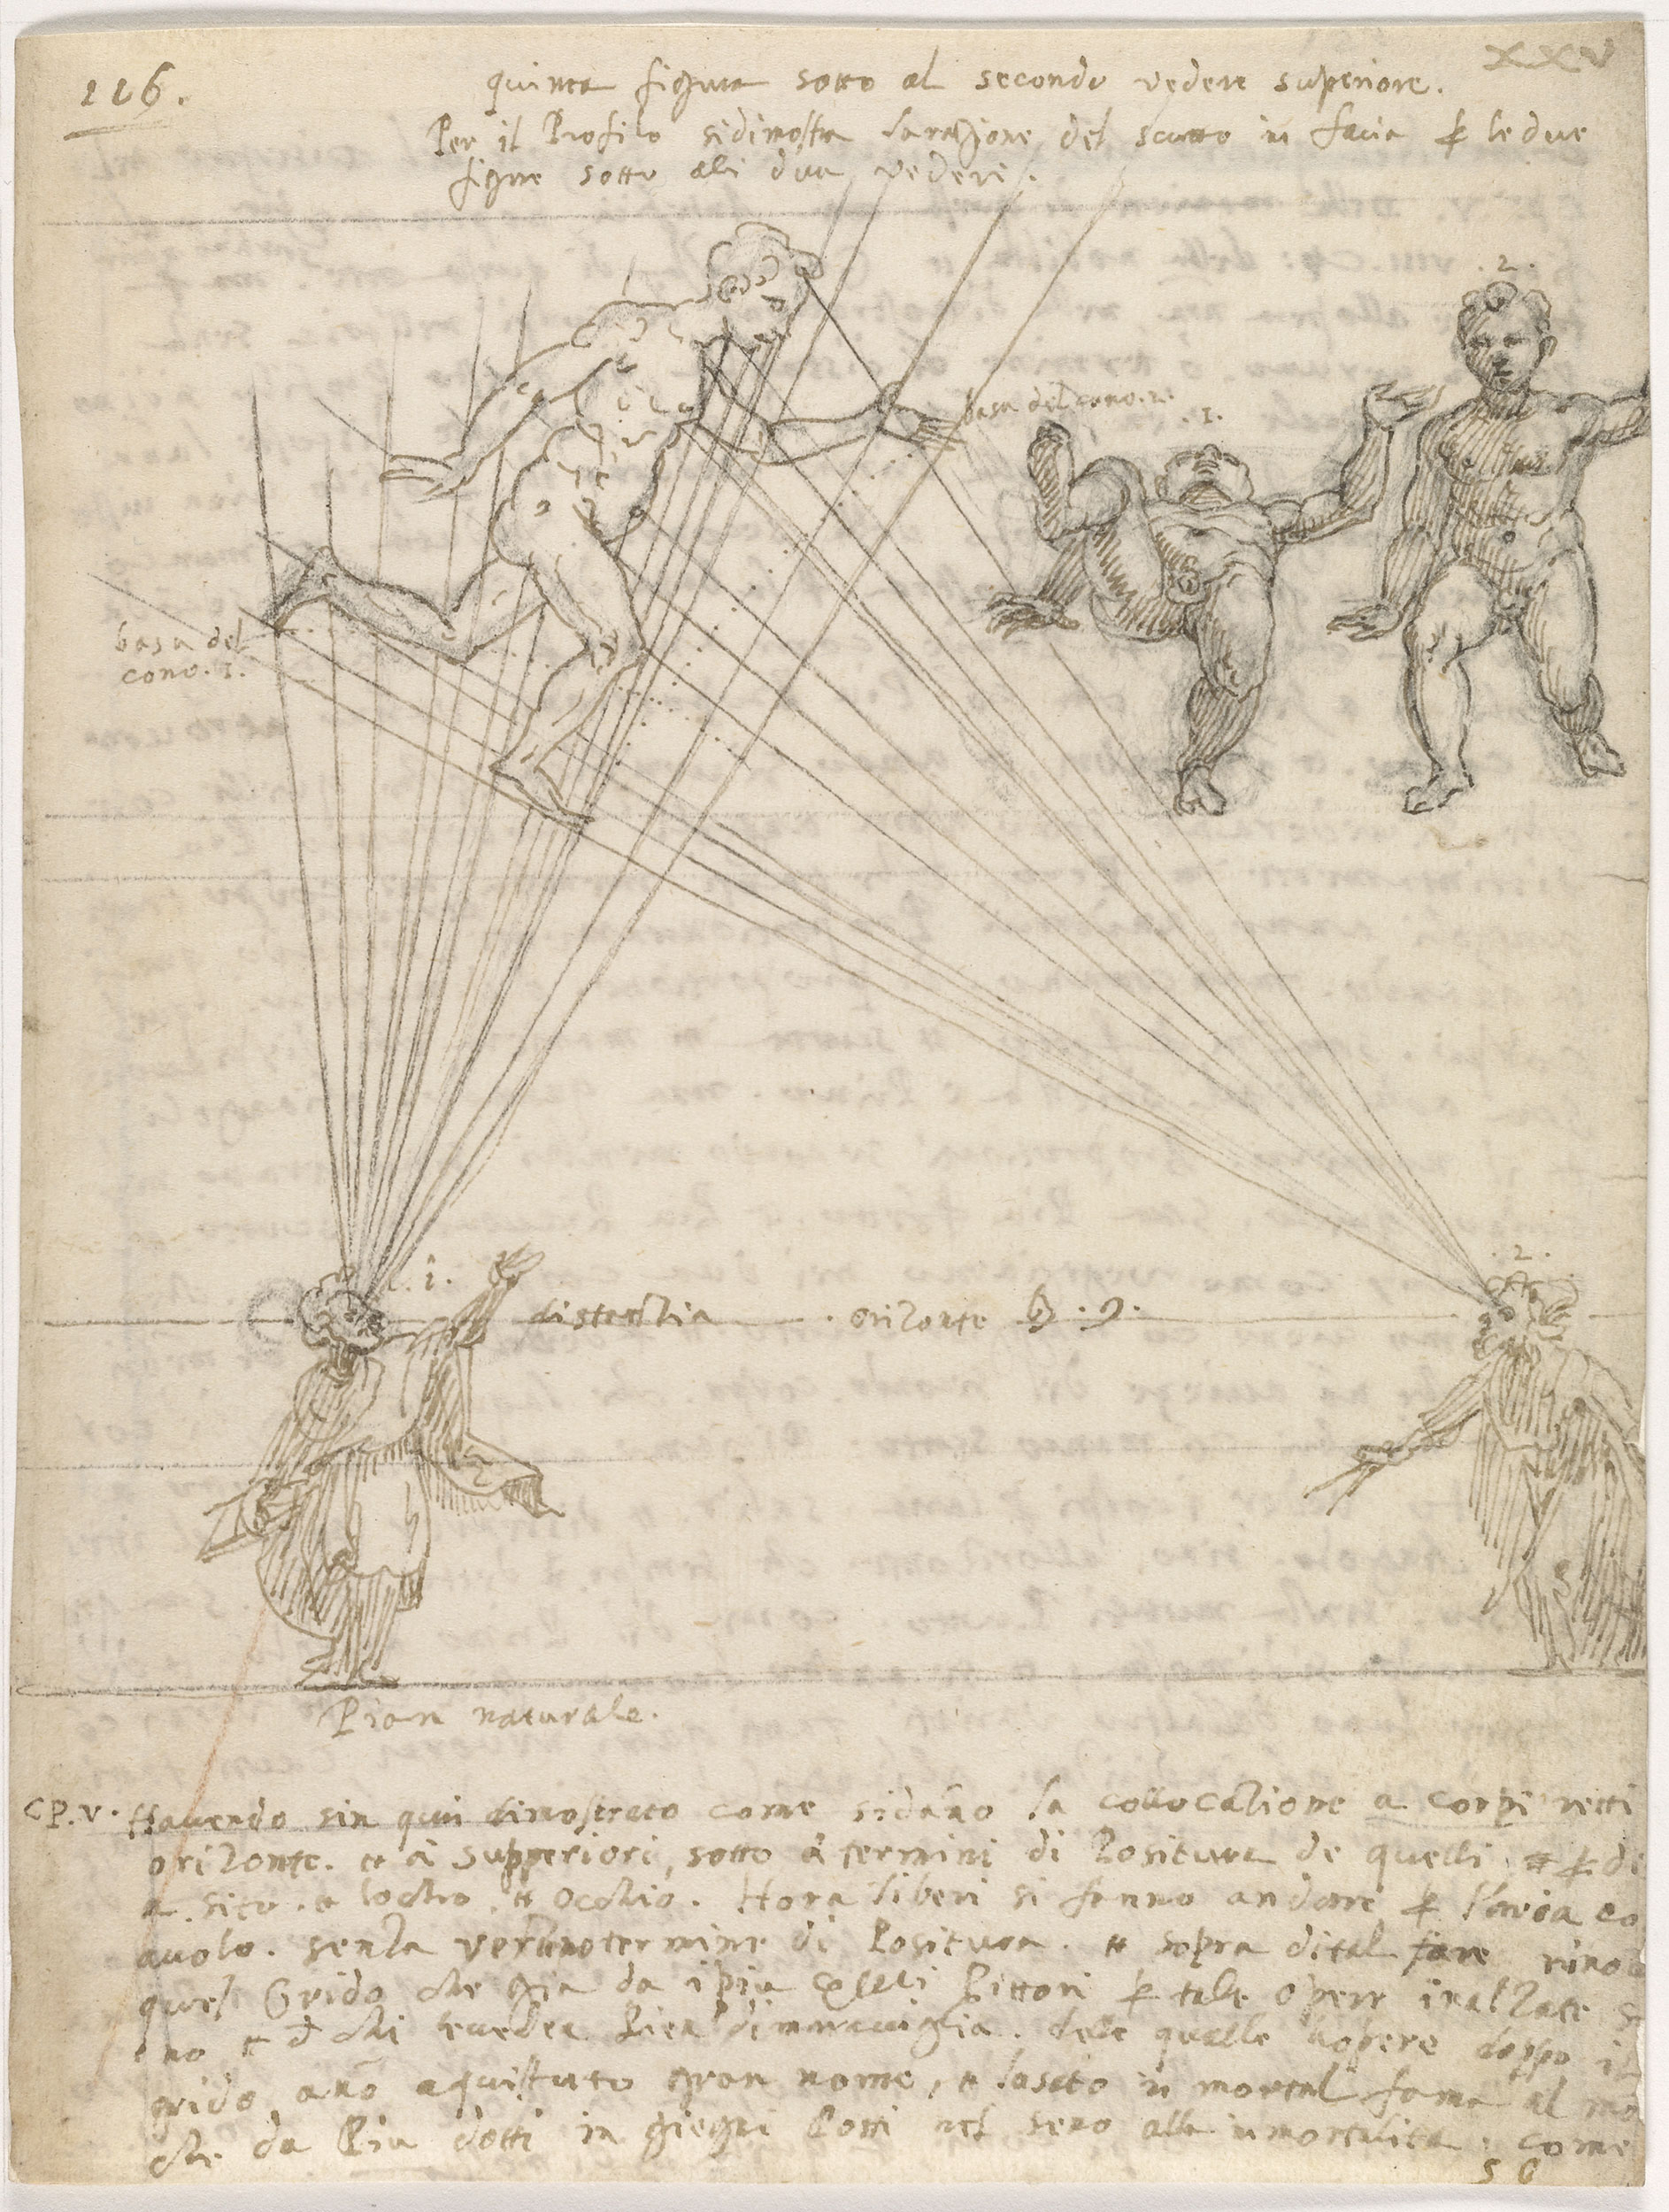 XXV
116.
quinta figura sotto al secondo vedere superiore.
Per il Profilo sidimostra la ragione del scurto in facia ꝑ le due
figure sotto ali dua vederi.
.2.
basa del cono.2.
.1.
basa del
cono.1.
.1.
.2.
distantia . orizonte
Pian naturale.
CP.V. Havendo sin qui dimostrato come sidano la collocatione a corpi retti
orizonte. et a supperiori, sotto a termini di Positura de quelli
a sito. et locho. et occhio. Hora liberi si fanno andare ꝑ l'aria
avolo. senza termine di Positura. et sopra dital fare
quel Grido che gia da i piu Pittori ꝑ tale opere inalzate
no et che levedea Piea dimaraviglia. dele qualle hopere doppo il
grido ano aquistato gran nome, et lasato in mortal fama al
che da Piu dotti in giegni Posti nel seno alla inmortalita. come
50